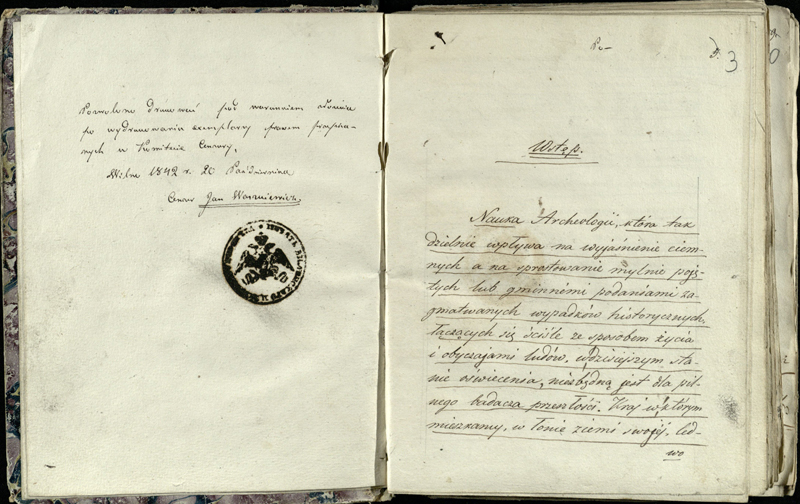 Pozwolono drukować pod warunkiem złożenia
po wydrukowaniu exemplarzy prawem przepisa-
nych w Komitecie Cenzury.
Wilno 1842 r. 26 Października
Cenzor Jan Waszkiewicz
Po-
3
Wstęp.
Nauka Archeologii, która tak
dzielnie wpływa na wyjaśnienie ciem-
nych a na sprostowanie mylnie poję-
tych lub gminnémi podaniami za-
gmatwanych wypadków historycznych,
łączących się ściśle ze sposobem życia
i obyczajami ludów, w dzisiejszym sta-
nie oświecenia, niezbędną jest dla pil-
nego badacza przeszłości. Kraj w którym
mieszkamy, w łonie ziemi swojéj, led-
wo